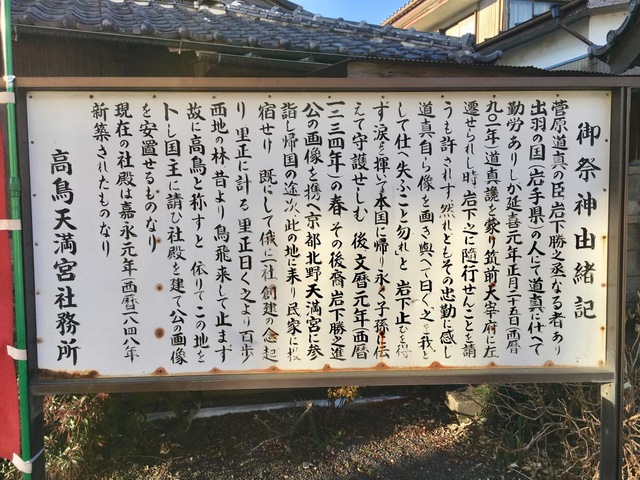 御祭神由緒記
菅原道真の臣岩下勝之丞なる者あり
出羽の国(岩手県)の人にて道真に仕へて
勤労ありしが延喜元年正月二十五日(西暦
九〇一年)道真讒を蒙り筑前大宰府に左
遷せられし時岩下之に随行せんことを請
うも許されず然れともその忠勤に感し
道真自ら像を画き與へて曰く「之を我と
して仕へ失ふこと勿れ」と岩下止むを得
ず涙を揮いて本国に帰り永く子孫に伝
えて守護せしむ後文暦元年(西暦
一二三四年)の春その後裔岩下勝之進
公の画像を携へ京都北野天満宮に参
詣し帰国の途次此の地に来り民家に投
宿せり既にして俄に一社創建の念起
り里正に計る里正曰く之より百歩
西地の林昔より鳥飛来して止まず
故に高鳥と称すと依りてこの地を
卜し国主に請ひ社殿を建て公の画像
を安置せるものなり
現在の社殿は嘉永元年西暦一八四八年
新築されたものなり
高鳥天満宮社務所